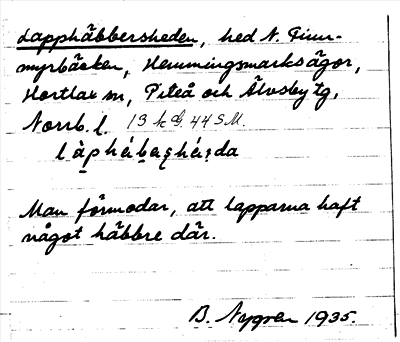 Lapphäbbersheden, hed N. Finn-
myrbäcken, Hemmingsmarks ägor,
Hortlax sn, Piteå och Älvsby tg,
Norrb. l. 13 k G. 44 S.M.
Man förmodar, att lapparna haft
något häbbre där.
B. Nygren 1935.